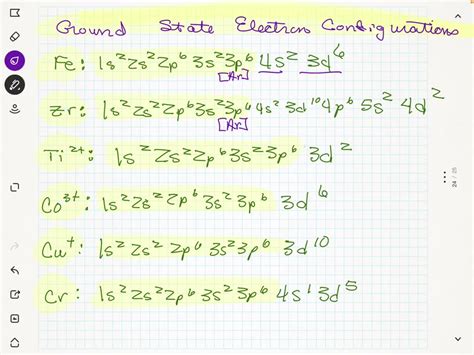 Ground State Electron Configurations
Fe: 1s² 2s² 2p⁶ 3s² 3p⁶ 4s² 3d⁶
[Ar]
Zr: 1s² 2s² 2p⁶ 3s² 3p⁶ 4s² 3d¹⁰ 4p⁶ 5s² 4d²
[Ar]
Ti²⁺: 1s² 2s² 2p⁶ 3s² 3p⁶ 3d²
Co³⁺: 1s² 2s² 2p⁶ 3s² 3p⁶ 3d⁶
Cu⁺: 1s² 2s² 2p⁶ 3s² 3p⁶ 3d¹⁰
Cr: 1s² 2s² 2p⁶ 3s² 3p⁶ 4s¹ 3d⁵
24 / 25